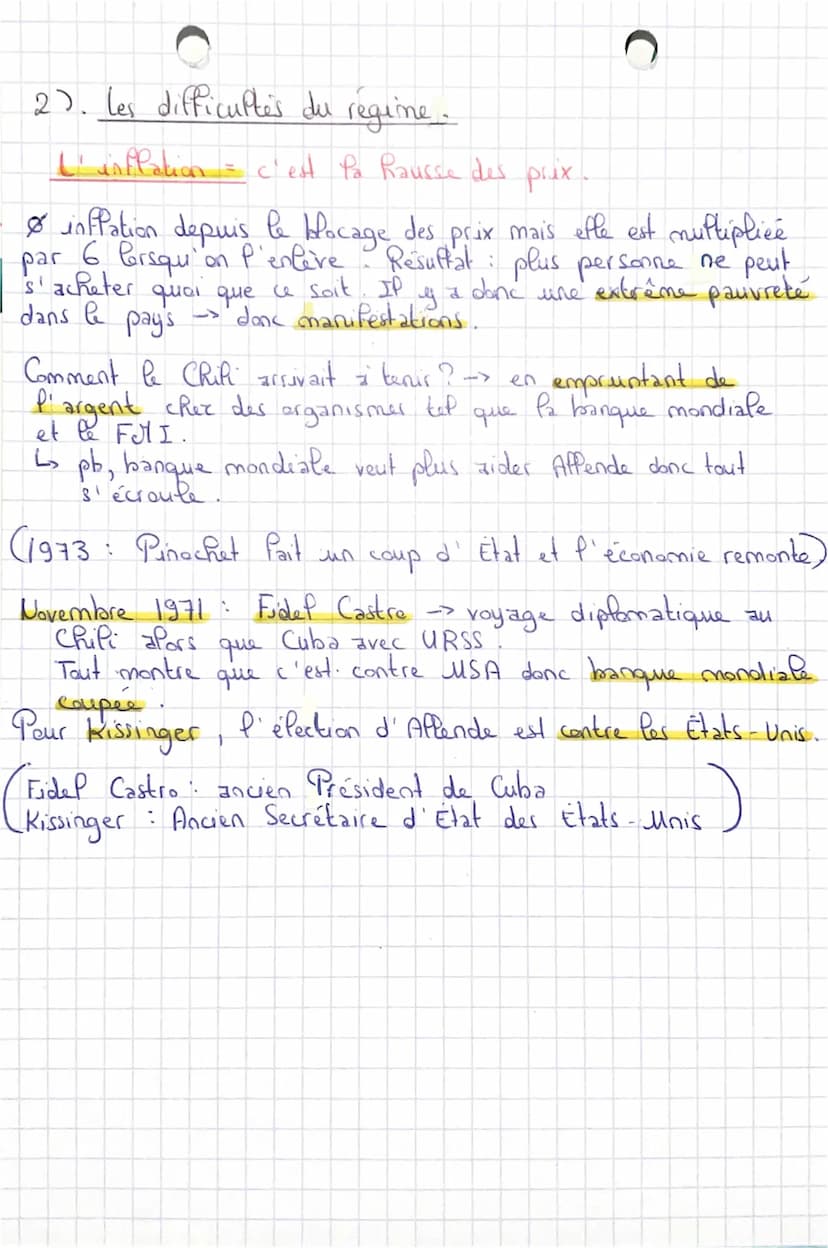 2). Les difficultés du régime.
L'inflation = c'est la hausse des prix.
Ø inflation depuis le blocage des prix mais elle est multipliéé
par 6 lorsqu'on l'enlève. Résultat : plus personne ne peut
s'acheter quoi que ce soit. Il y a donc une extrême pauvreté
dans le pays -> donc manifestations.
Comment le Chili arrivait à tenir ? -> en empruntant de
l'argent chez des organismes tel que la banque mondiale
et le FMI.
↳ pb, banque mondiale veut plus aider Allende donc tout
s'écroule.
(1973 : Pinochet fait un coup d'État et l'économie remonte)
Novembre 1971 : Fidel Castro -> voyage diplomatique au
Chili alors que Cuba avec URSS.
Tout montre que c'est contre USA donc banque mondiale
coupée.
Pour Kissinger, l'élection d'Allende est contre les États-Unis.
(Fidel Castro : ancien Président de Cuba
Kissinger : Ancien Secrétaire d'État des États-Unis)